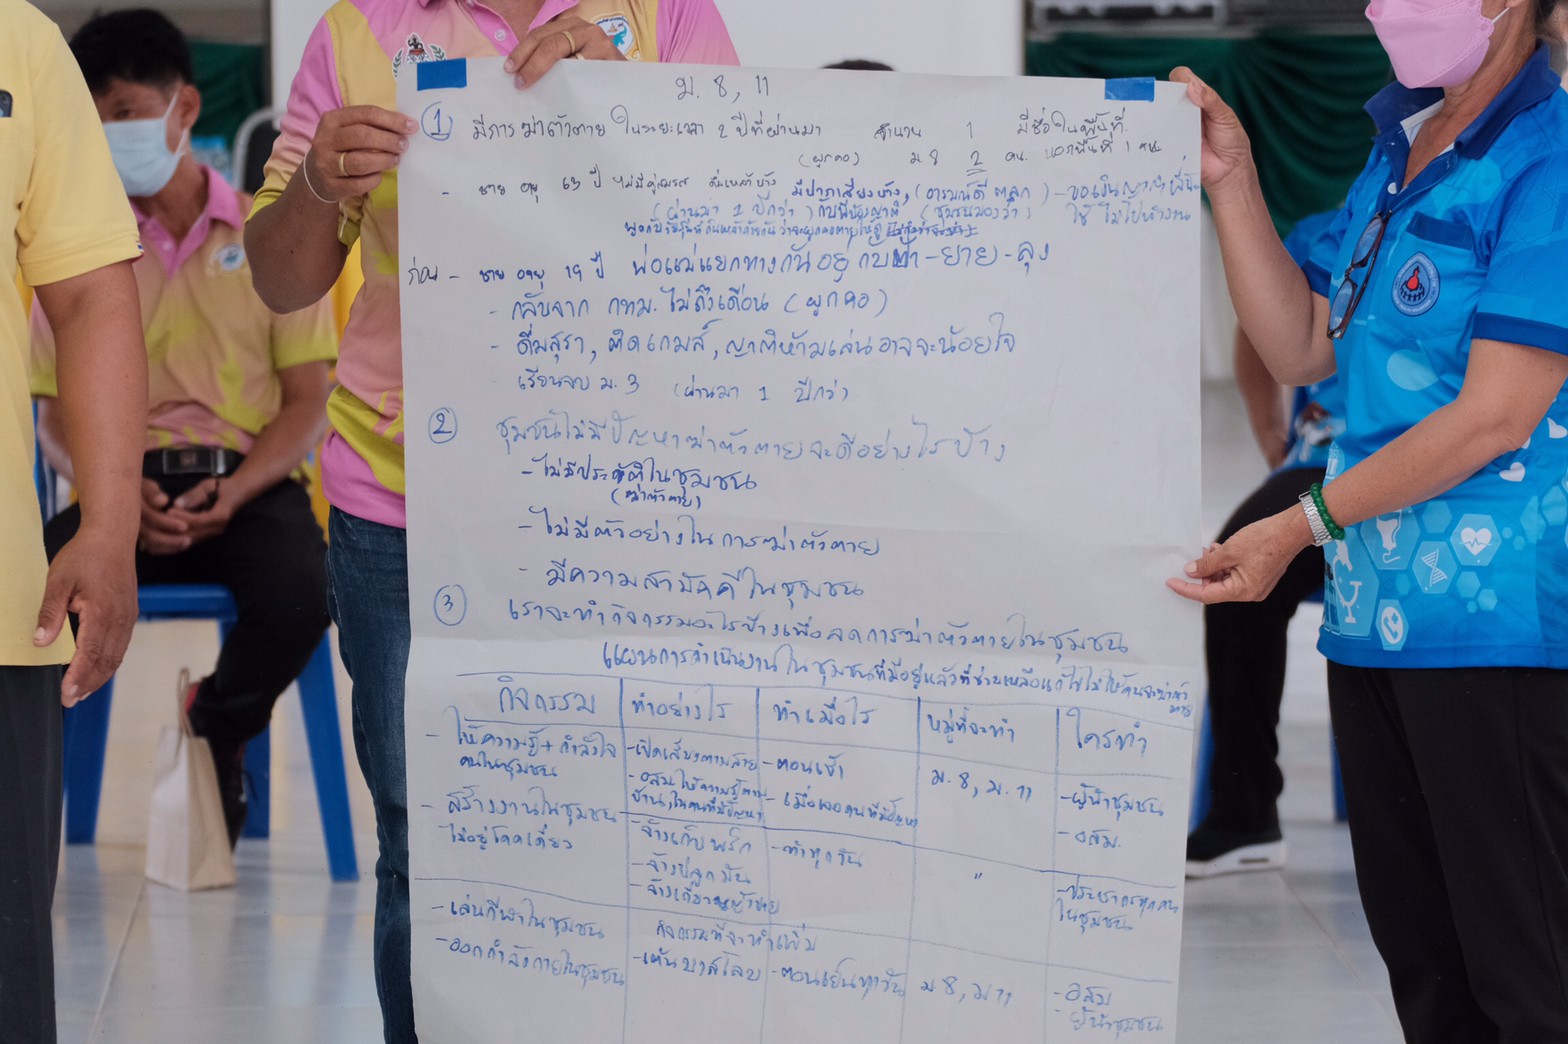 ม. 8, 11
① มีการฆ่าตัวตาย ในระยะเวลา 2 ปีที่ผ่านมา จำนวน 1 มีชื่อในพื้นที่
(ผูกคอ) ม 8 2 คน. นอกพื้นที่ 1 คน
- ชาย อายุ 63 ปี ไม่มีคู่สมรส ดื่มเหล้าบ้าง มีปากเสียงบ้าง, (อารมณ์ดี ตลก) - ขอเงินญาติ
(ผ่านมา 1 ปีกว่า) กับพี่น้องญาติ (ชุมชนมองว่า) ใช้ ไม่ไปทำงาน
ก่อน - ชาย อายุ 19 ปี พ่อแม่แยกทางกัน อยู่กับป้า - ยาย - ลุง
- กลับจาก กทม. ไม่ถึงเดือน (ผูกคอ)
- ดื่มสุรา, ติดเกมส์, ญาติห้ามเล่นอาจจะน้อยใจ
- เรียนจบ ม. 3 (ผ่านมา 1 ปีกว่า)
② ชุมชนไม่มีปัญหาฆ่าตัวตายจะดีอย่างไรบ้าง
- ไม่มีประวัติในชุมชน
(ฆ่าตัวตาย)
- ไม่มีตัวอย่างในการฆ่าตัวตาย
- มีความสามัคคีในชุมชน
③ เราจะทำกิจกรรมอะไรบ้างเพื่อลดการฆ่าตัวตายในชุมชน
แผนการดำเนินงานในชุมชนที่มีอยู่แล้วที่ช่วยเหลือแก้ไขไม่ให้คนฆ่าตัวตาย
กิจกรรม ทำอย่างไร ทำเมื่อไร หมู่ที่จะทำ ใครทำ
- ให้ความรู้ + กำลังใจ - เปิดเสียงตามสาย - ตอนเช้า ม. 8, ม. 11 - ผู้นำชุมชน
คนในชุมชน - อสม ให้ความรู้ตาม - เมื่อเจอคนที่มีปัญหา - อสม.
บ้าน, ในคนที่มีปัญหา
- สร้างงานในชุมชน - จ้างเก็บพริก - ทำทุกวัน " - ประชากรทุกคน
ไม่อยู่โดดเดี่ยว - จ้างปลูกมัน ในชุมชน
- เล่นกีฬาในชุมชน กิจกรรมที่จะทำเพิ่ม
- ออกกำลังกายในชุมชน - เต้นบาสโลบ - ตอนเย็นทุกวัน ม 8, ม 11 - อสม
- ผู้นำชุมชน